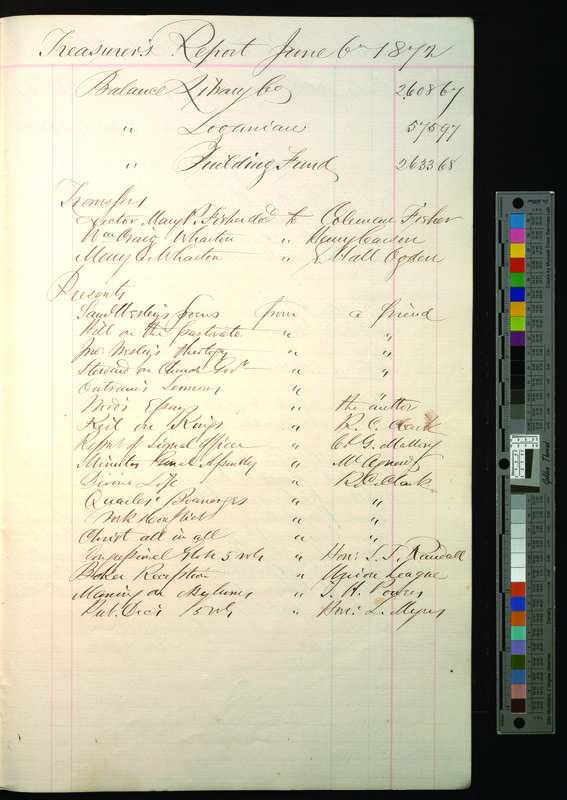 Treasurer's Report June 6th 1872
Balance Library Co 2608 67
" Loganian 575 97
" Building Fund 2633 68
Transfers
Exector Mary P. Fisher decd to Coleman Fisher
Wm Craig Wharton " Henry Carson
Mary C. Wharton " Hall Ogden
Presents
Saml Wesley's Poems from a friend
Hill on the Pastorate " "
Jno Wesley's " "
Steward on Church Govt " "
Outram's Sermons " "
Essay " the author
Keil on Kings " R. C. Clark
Report of Signal Officer " Col G. Mallery
Minutes Genl. Assembly " Mr Agnew
Divine Life " R. C. Clark
Quarles' Boanerges " "
York " "
Christ all in all " "
Congressional Globe 5 vols " Hon: S. J. Randall
Baker Reception " Union League
Manning on Asylums " T. H. Powers
Pub. Docs 15 vols " Hon: L. Myers